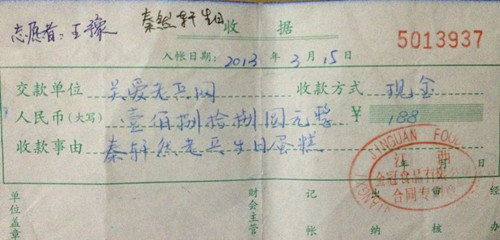 志愿者：王豫 秦然轩生日 收 据 5013937
入帐日期：2013 年 3 月 15 日
交款单位 关爱老兵网 收款方式 现金
人民币(大写) 壹佰捌拾捌圆元整 ¥ 188
收款事由 秦轩然老兵生日蛋糕
年 月 日
JIANGUAN FOOD
冠食品有限
合同专
单位盖章 财会主管 记帐 出纳 审核 经办